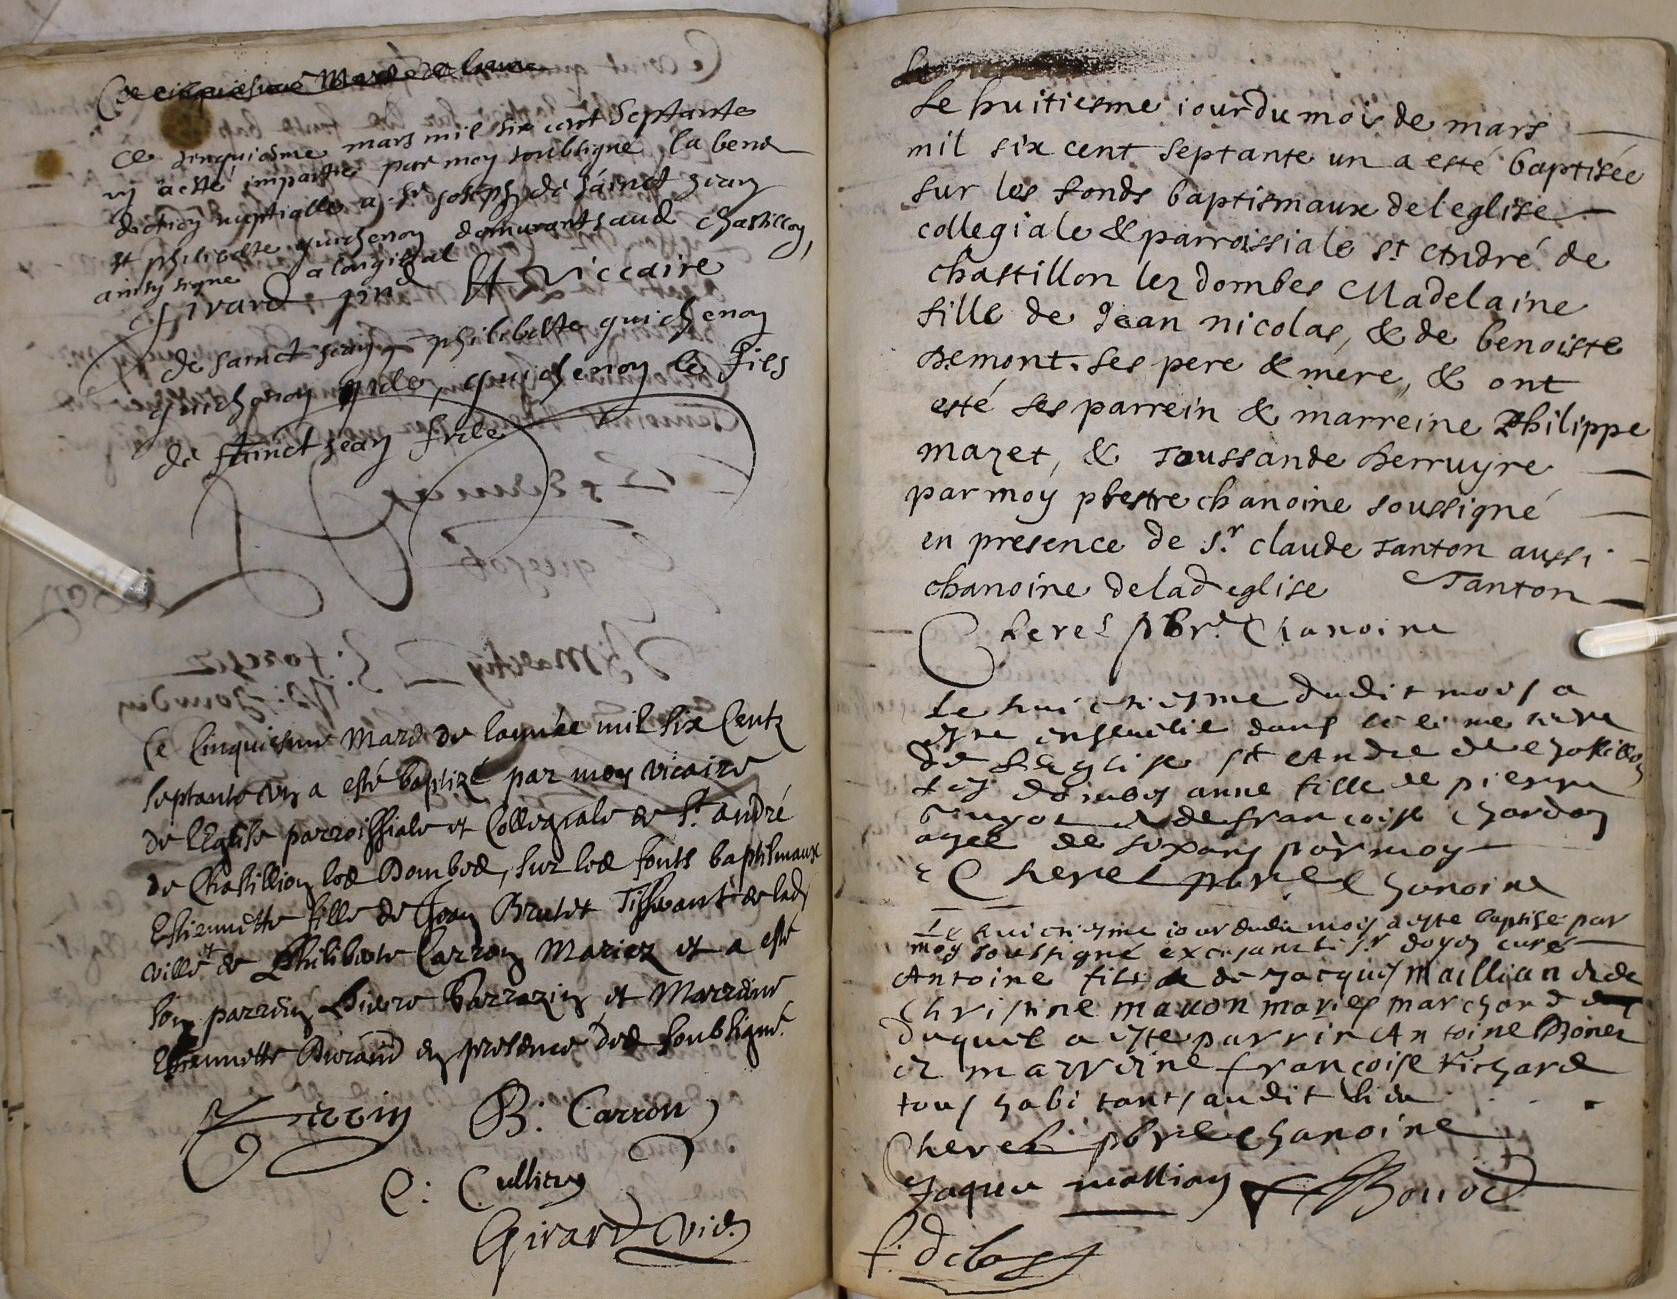 Ce cinquiesme Mars de lanne
Ce cinquiesme mars mil six cent septante
un a esté impartie par moy soubsigné la bene
diction nuptialle a Sr Joseph de sainct jean
et philiberte guichenon demeurants aud chastillon,
ainsy signe a loriginal
Girard pnd st viccaire
de sainct jean philiberte guichenon
guichenon guichenon le fils
de sainct jean
Ce Cinquiesme Mars de lannée mil six Centz
septante un a esté baptizé par moy vicaire
de l'Eglise parroissiale et Collegiale de St André
de Chastillion les Dombes, sur les fonts baptismaux
Estiennette fille de Jean Brulet Tisserant de lad
ville et de Philiberte Carron Mariez et a esté
son parrein Pierre Sarrazin et Marreine
Estiennette Durand en presence des soubsignes
B: Carron
C: Cullier
Girard vic.
Le huitiesme iour du mois de mars
mil six cent septante un a esté baptisée
sur les fonds baptismaux de l'eglise
collegiale & parroissiale St André de
chastillon lez dombes Madelaine
fille de Jean nicolas, & de benoiste
Demont. ses pere & mere, & ont
esté ses parrein & marreine Philippe
mazet, & Toussande Berruyre
par moy prestre chanoine soussigné
en presence de Sr. claude Tanton aussi
chanoine de lad eglise Tanton
Cherel pbre. Chanoine
Le huictiesme dudit mois a
este ensevelie dans le cimetiere
de l'Eglise St Andre de Chastillon
les dombes anne fille de pierre
& de françoise Chardon
agee de six ans par moy
Cherel pbre Chanoine
Le huictiesme iour dudit mois a este baptise par
moy soussigné excusant le sr doyen curé
Antoine fils de Jacques maillian & de
Christine mavon mariés marchand
duquel a este parrin Antoine Boner
et marrine françoise Richard
tous habitants audit lieu
Cherel pbre Chanoine
Jaques mallian Bonod
f. delost